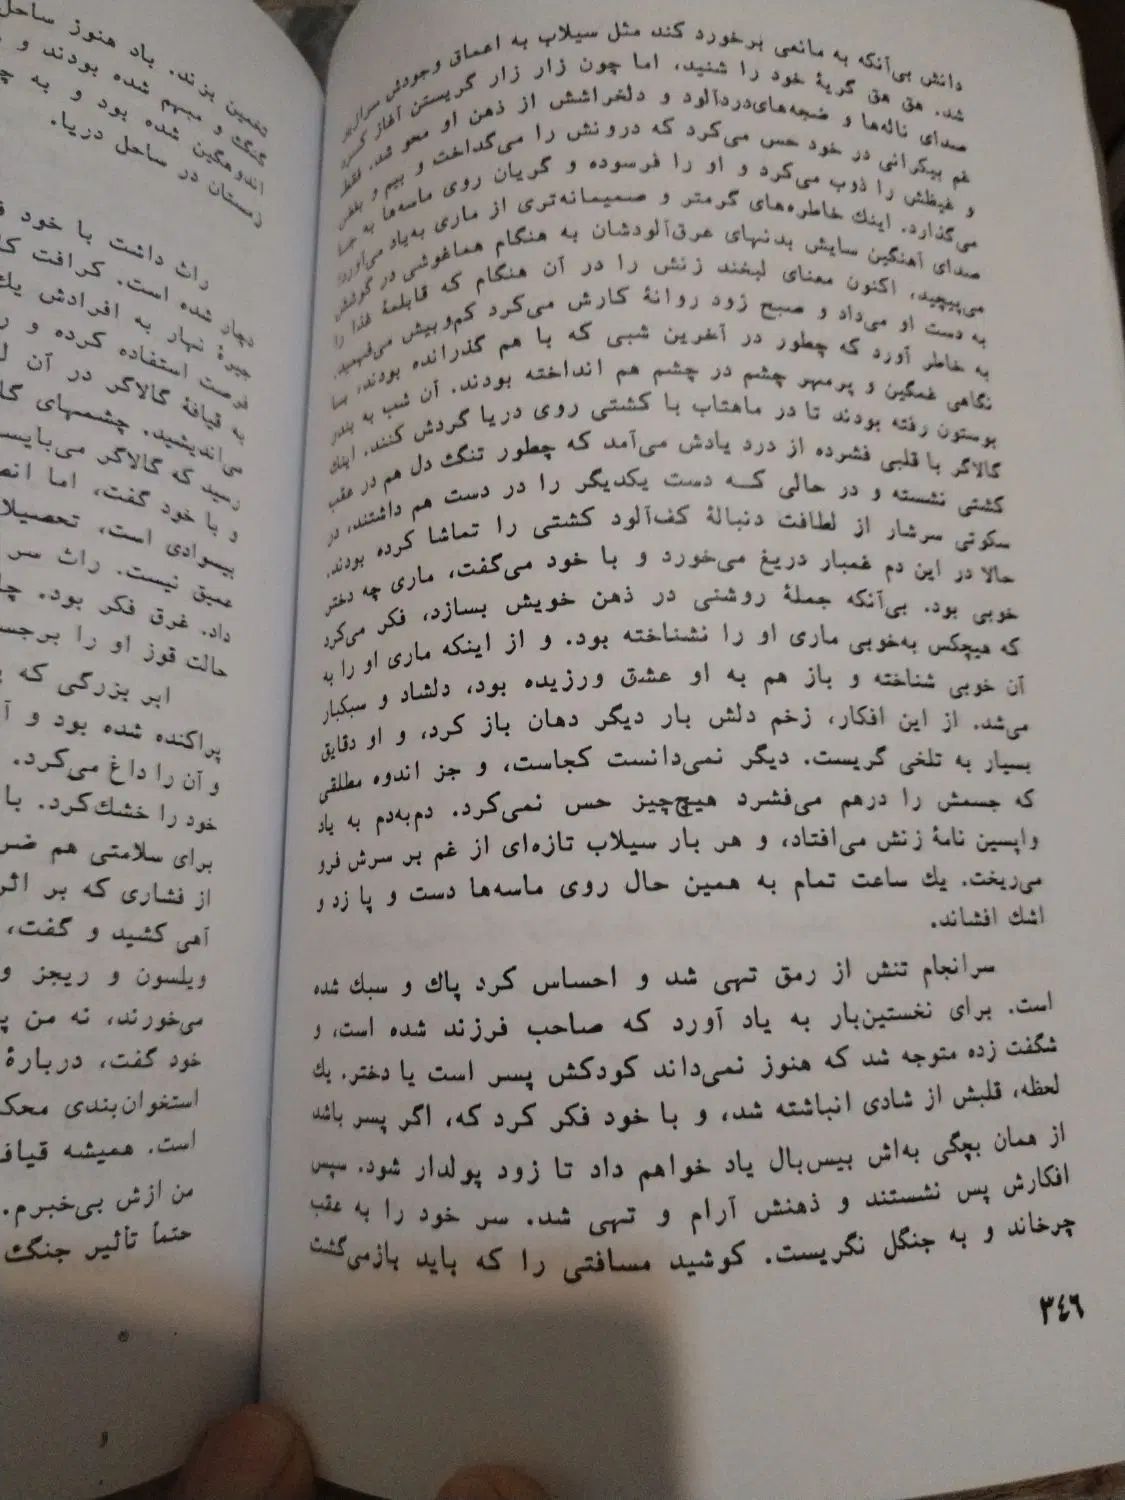 دانش بی‌آنکه به مانعی برخورد کند مثل سیلاب به اعماق وجودش سرازیر
شد. هق هق گریهٔ خود را شنید، اما چون زار زار گریستن آغاز کرد
صدای ناله‌ها و ضجه‌های‌دردآلود و دلخراشش از ذهن او محو شد. فقط
غم بیکرانی در خود حس می‌کرد که درونش را می‌گداخت و بیم و بغض
و غیظش را ذوب می‌کرد و او را فرسوده و گریان روی ماسه‌ها به جا
می‌گذارد. اینك خاطره‌های گرمتر و صمیمانه‌تری از ماری به‌یاد می‌آورد؛
صدای آهنگین سایش بدنهای عرق‌آلودشان به هنگام هماغوشی در گوشش
می‌پیچید، اکنون معنای لبخند زنش را در آن هنگام که قابلمهٔ غذا را
به دست او می‌داد و صبح زود روانهٔ کارش می‌کرد کم‌وبیش می‌فهمید.
به خاطر آورد که چطور در آخرین شبی که با هم گذرانده بودند، با
نگاهی غمگین و پرمهر چشم در چشم هم انداخته بودند. آن شب به بندر
بوستون رفته بودند تا در ماهتاب با کشتی روی دریا گردش کنند. اینك
گالاگر با قلبی فشرده از درد یادش می‌آمد که چطور تنگ دل هم در عقب
کشتی نشسته و در حالی کـه دست یکدیگر را در دست هم داشتند، در
سکوتی سرشار از لطافت دنبالهٔ کف‌آلود کشتی را تماشا کرده بودند.
حالا در این دم غمبار دریغ می‌خورد و با خود می‌گفت، ماری چه دختر
خوبی بود. بی‌آنکه جملهٔ روشنی در ذهن خویش بسازد، فکر می‌کرد
که هیچکس به‌خوبی ماری او را نشناخته بود. و از اینکه ماری او را به
آن خوبی شناخته و باز هم به او عشق ورزیده بود، دلشاد و سبکبار
می‌شد. از این افکار، زخم دلش بار دیگر دهان باز کرد، و او دقایق
بسیار به تلخی گریست. دیگر نمی‌دانست کجاست، و جز اندوه مطلقی
که جسمش را درهم می‌فشرد هیچ‌چیز حس نمی‌کرد. دم‌به‌دم به یاد
واپسین نامهٔ زنش می‌افتاد، و هر بار سیلاب تازه‌ای از غم بر سرش فرو
می‌ریخت. یك ساعت تمام به همین حال روی ماسه‌ها دست و پا زد و
اشك افشاند.
سرانجام تنش از رمق تهی شد و احساس کرد پاك و سبك شده
است. برای نخستین‌بار به یاد آورد که صاحب فرزند شده است، و
شگفت زده متوجه شد که هنوز نمی‌داند کودکش پسر است یا دختر. یك
لحظه، قلبش از شادی انباشته شد، و با خود فکر کرد که، اگر پسر باشد
از همان بچگی به‌اش بیس‌بال یاد خواهم داد تا زود پولدار شود. سپس
افکارش پس نشستند و ذهنش آرام و تهی شد. سر خود را به عقب
چرخاند و به جنگل نگریست. کوشید مسافتی را که باید بازمی‌گشت
۳۴۶
تخمین بزند. باد هنوز ساحل
گنگ و مبهم شده بودند و
اندوهگین شده بود و به
زمستان در ساحل دریا.
راث داشت با خود
دچار شده است. کرافت
جیرهٔ نهار به افرادش یك
فرصت استفاده کرده و
به قیافهٔ گالاگر در آن
می‌اندیشید. چشمهای
رسید که گالاگر می‌بایست
و با خود گفت، اما
بیسوادی است، تحصیلا
عمیق نیست. راث سر
داد. غرق فکر بود.
حالت قوز او را برجس
ابر بزرگی که
پراکنده شده بود و
و آن را داغ می‌کرد.
خود را خشك‌کرد. با
برای سلامتی هم ضر
از فشاری که بر اثر
آهی کشید و گفت،
ویلسون و ریجز و
می‌خورند، نه من
خود گفت، دربارهٔ
استخوان‌بندی محک
است. همیشه قیاف
من ازش بی‌خبرم.
حتماً تأثیر جنگ